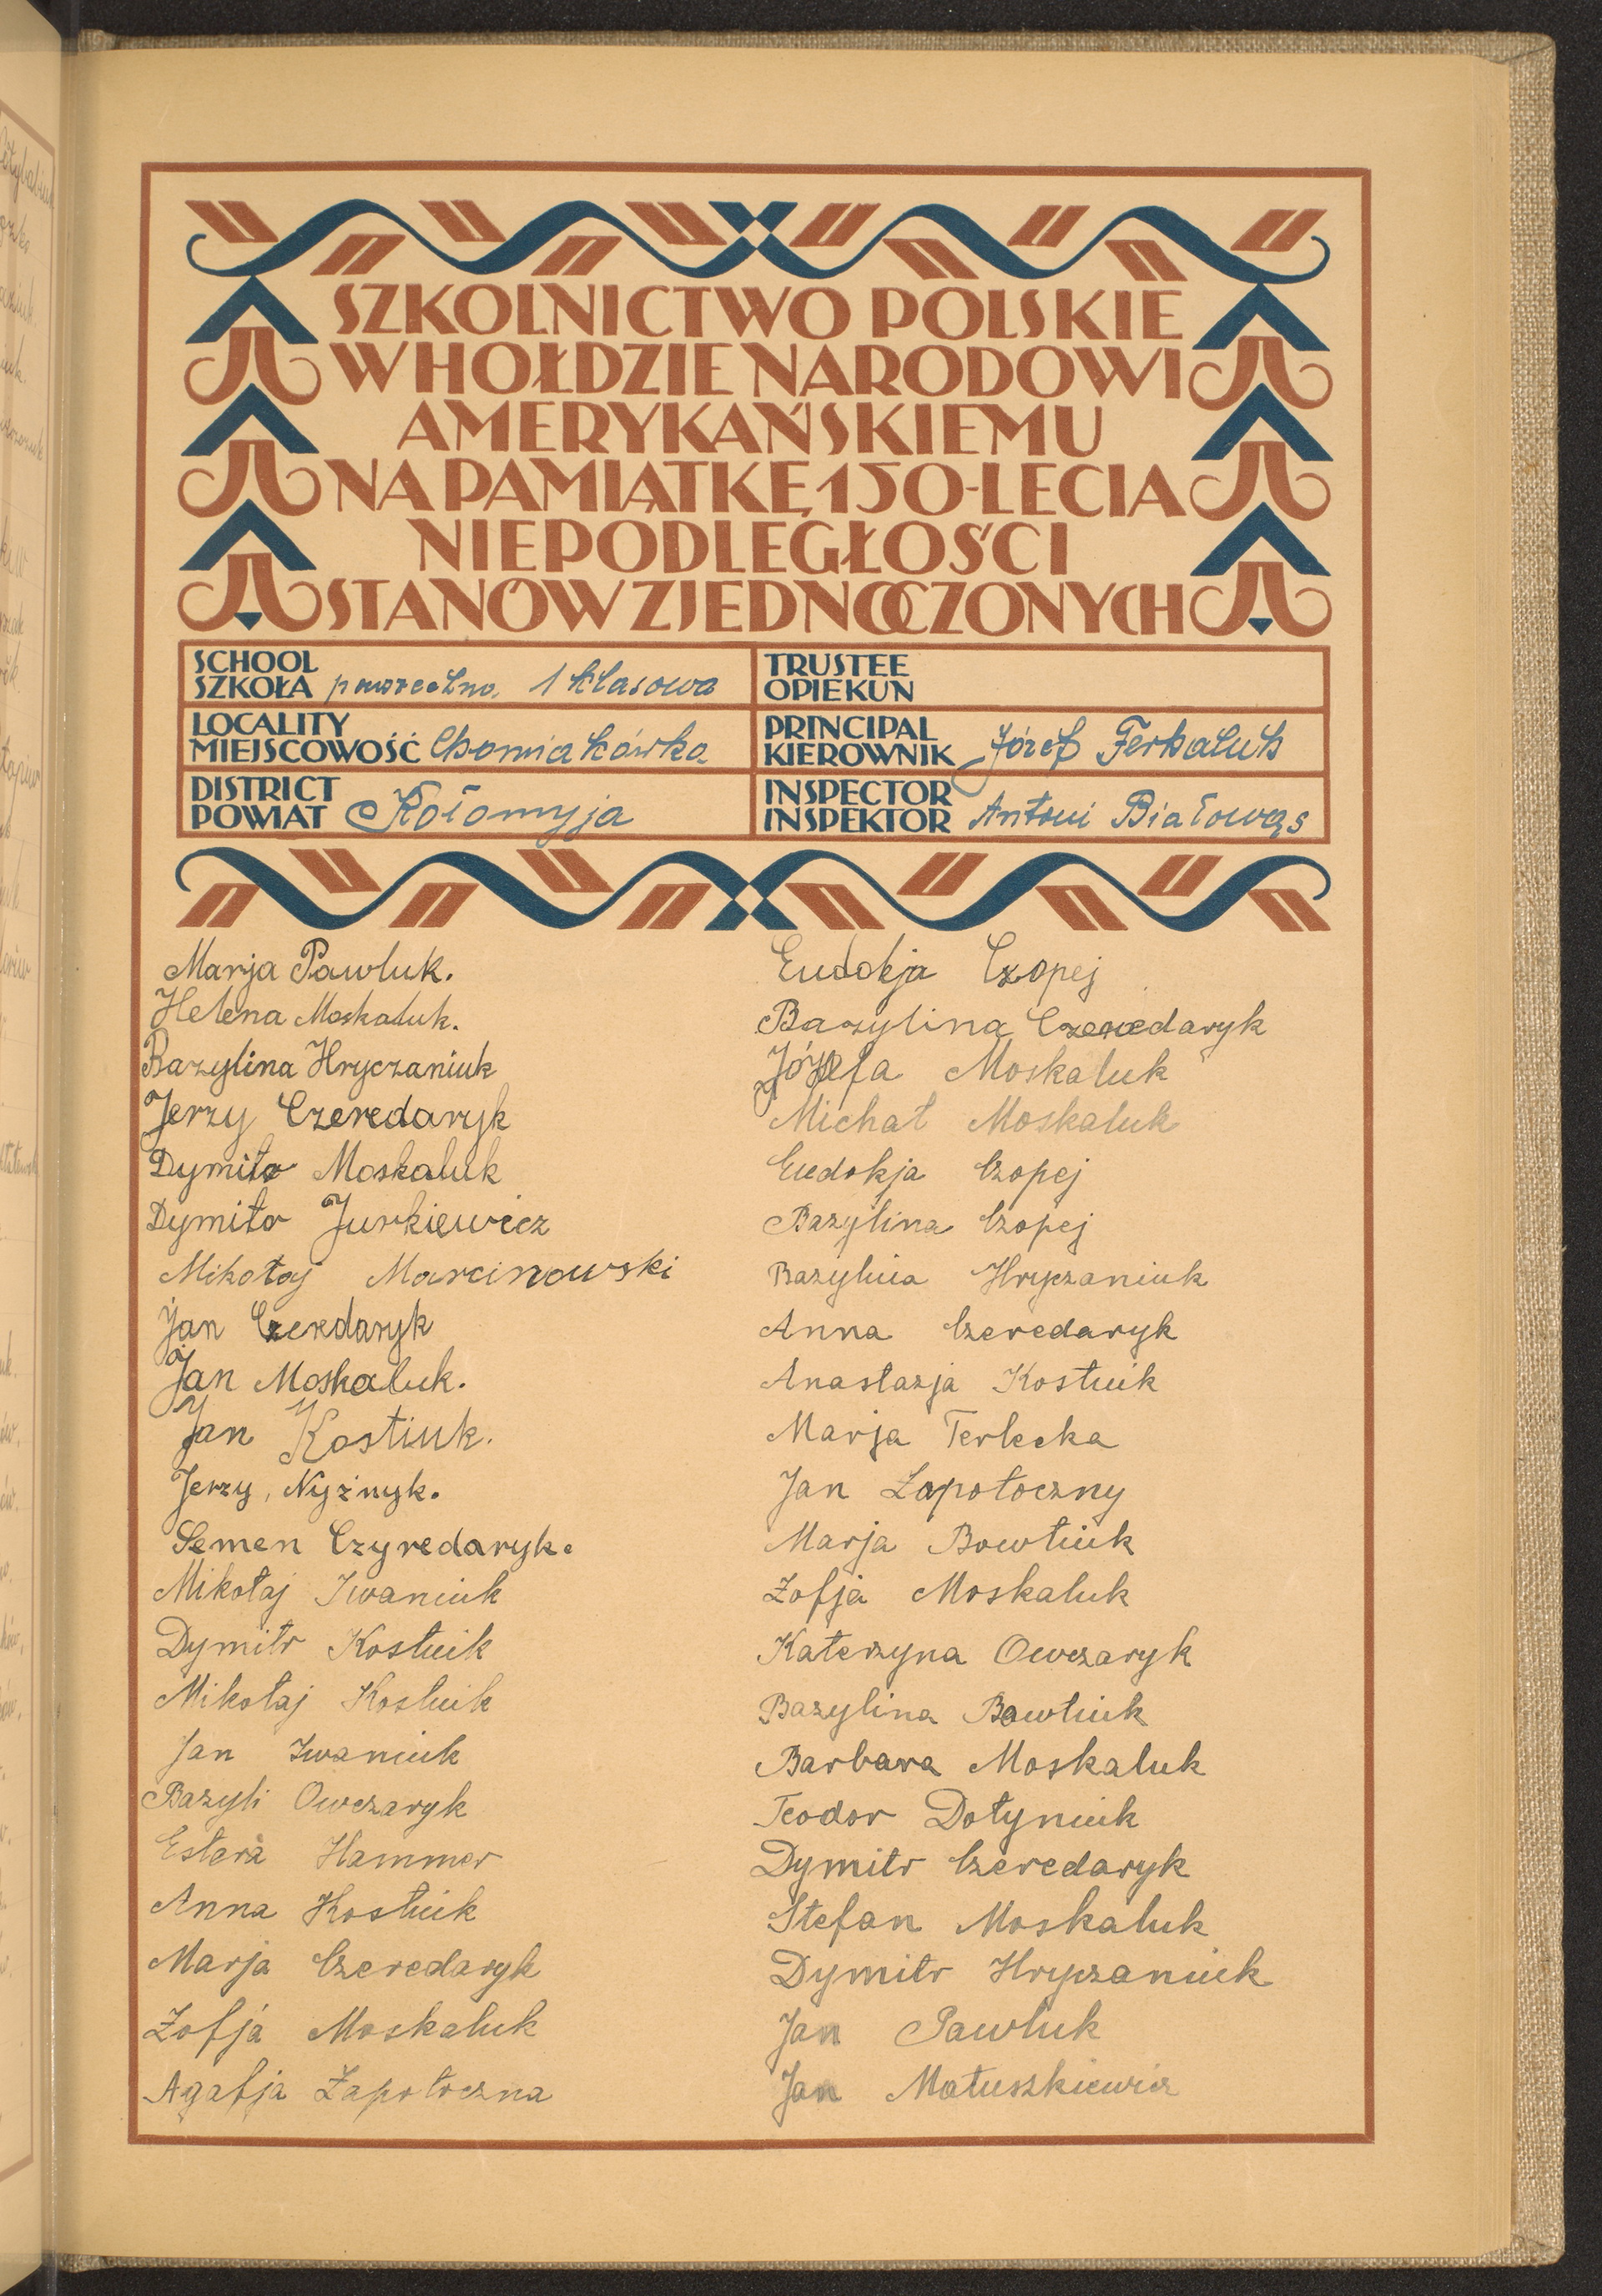 SZKOLNICTWO POLSKIE
W HOŁDZIE NARODOWI
AMERYKAŃSKIEMU
NA PAMIĄTKĘ 150-LECIA
NIEPODLEGŁOŚCI
STANÓW ZJEDNOCZONYCH
SCHOOL
SZKOŁA powszechna 1 klasowa
LOCALITY
MIEJSCOWOŚĆ Chomiakówka
DISTRICT
POWIAT Kołomyja
TRUSTEE
OPIEKUN
PRINCIPAL
KIEROWNIK Józef Ferbaluk
INSPECTOR
INSPEKTOR Antoni Białowąs
Marja Pawluk.
Helena Moskaluk.
Bazylina Hryczaniuk
Jerzy Czeredaryk
Dymitr Moskaluk
Dymitr Jurkiewicz
Mikołaj Marcinowski
Jan Czerdaryk
Jan Moskaluk.
Jan Kostiuk.
Jerzy, Nyżnyk.
Semen Czyredaryk.
Mikołaj Iwaniuk
Dymitr Kostiuk
Mikołaj Kostiuk
Jan Iwaniuk
Bazyli Owczaryk
Estera Hammer
Anna Kostiuk
Marja Czeredaryk
Zofja Moskaluk
Agafja Zapotoczna
Eudokja Czopej
Bazylina Czeredaryk
Józefa Moskaluk
Michał Moskaluk
Eudokja Czopej
Bazylina Czopej
Bazylina Hryczaniuk
Anna Czeredaryk
Anastazja Kostiuk
Marja Terlecka
Jan Zapotoczny
Marja Bowtiuk
Zofja Moskaluk
Katerzyna Owczaryk
Bazylina Bawtiuk
Barbara Moskaluk
Teodor Dotyniuk
Dymitr Czeredaryk
Stefan Moskaluk
Dymitr Hryczaniuk
Jan Pawluk
Jan Matuszkiewicz